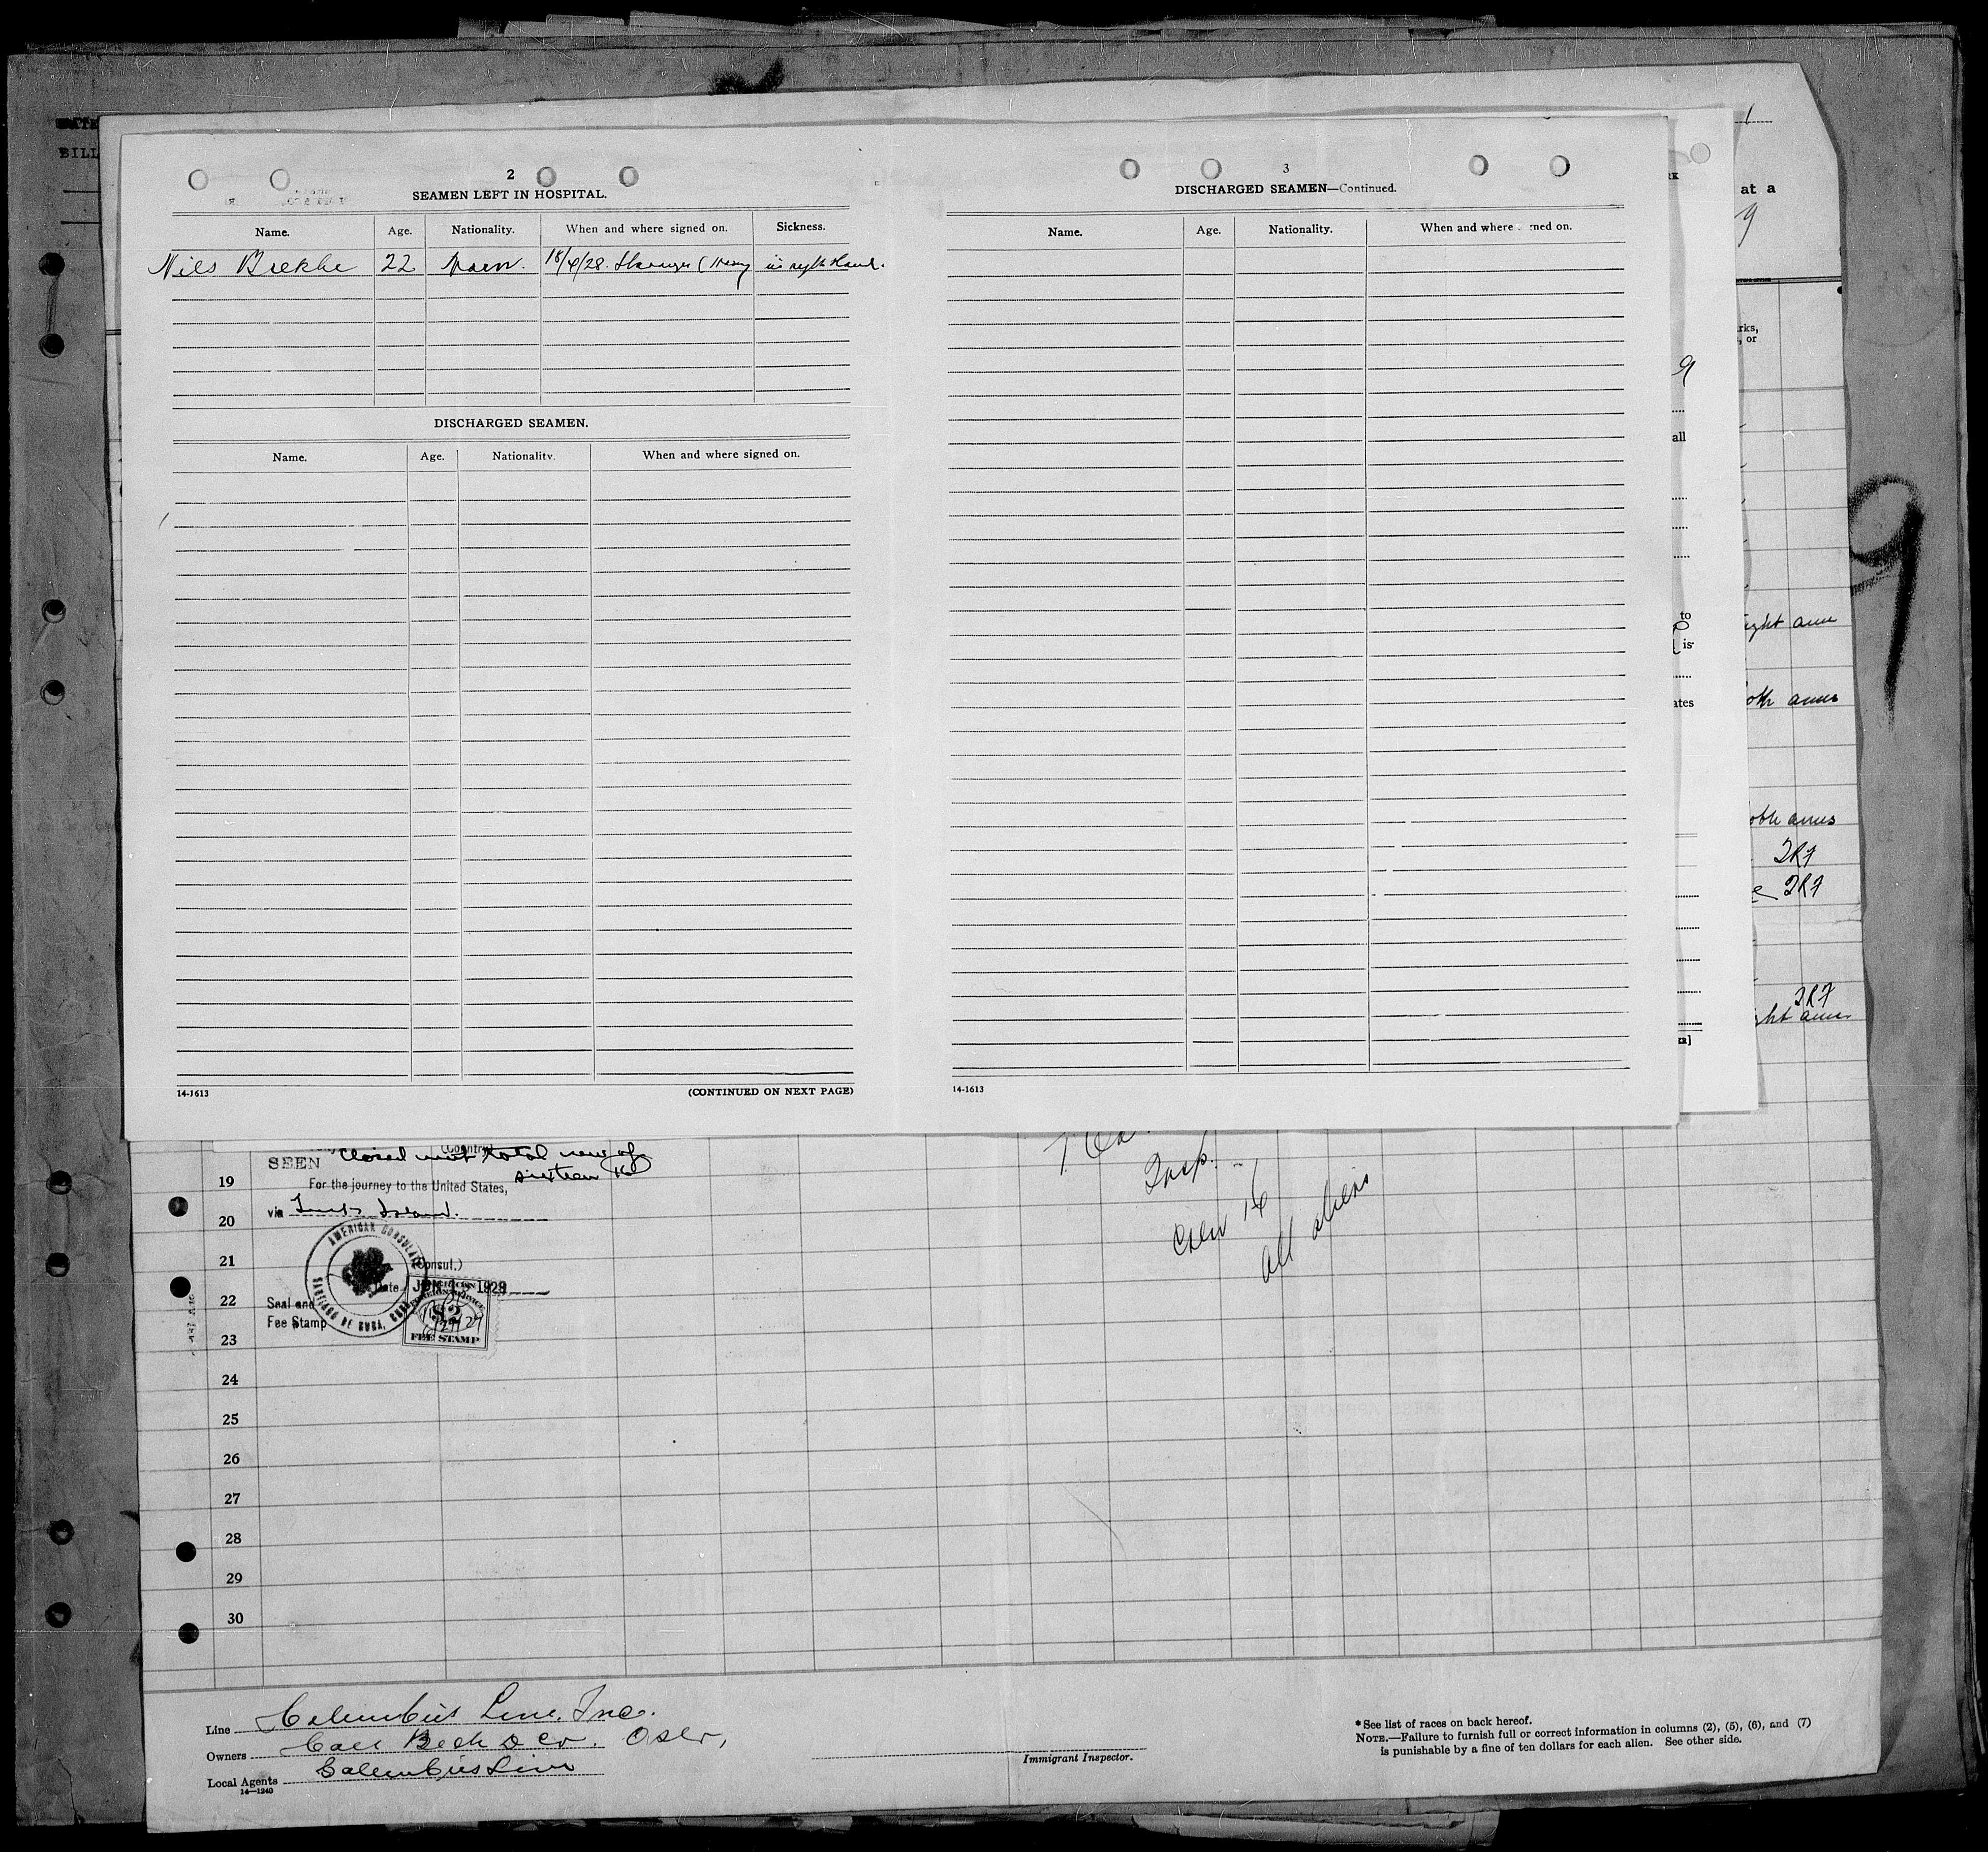 2
SEAMEN LEFT IN HOSPITAL.
Name. Age. Nationality. When and where signed on. Sickness.
Nils Brekke 22 Norw. 18/4/28. in right Hand.
DISCHARGED SEAMEN.
Name. Age. Nationality. When and where signed on.
14-1613 (CONTINUED ON NEXT PAGE)
3
DISCHARGED SEAMEN—Continued.
Name. Age. Nationality. When and where ned on.
14-1613
BILL
1
at a
9
rks,
, or
9
all
to
is
ates
9
ight arm
oth arms
oth arms
2R7
e 2R7
2R7
ght arm
(Country)
SEEN Closed with total crew of
sixteen 16
For the journey to the United States,
via Turks Island.
AMERICAN CONSULATE
SANTIAGO DE CUBA, CUBA
(Consul.)
Date JUN 1929
Seal and
Fee Stamp
$2
FEE STAMP
19
20
21
22
23
24
25
26
27
28
29
30
Insp.
Crew 16
all aliens
Line Columbus Line, Inc.
Owners Carl Bech & Co. Oslo,
Local Agents Columbus Line
14—1240
Immigrant Inspector.
* See list of races on back hereof.
NOTE.—Failure to furnish full or correct information in columns (2), (5), (6), and (7)
is punishable by a fine of ten dollars for each alien. See other side.